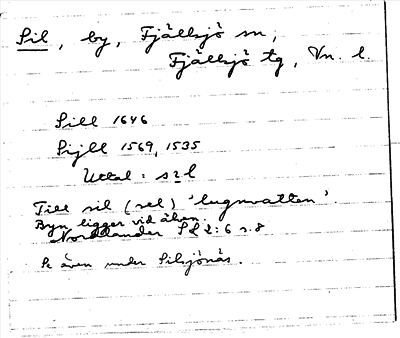 Sil, by, Fjällsjö sn,
Fjällsjö tg, Vn. l.
Sill 1646
Sijll 1569, 1535
Uttal: sɪl
Till sil (sel) 'lugnvatten'.
Byn ligger vid åkan.
Nordlander 2: 6 s. 8
Se även under Silsjönäs.